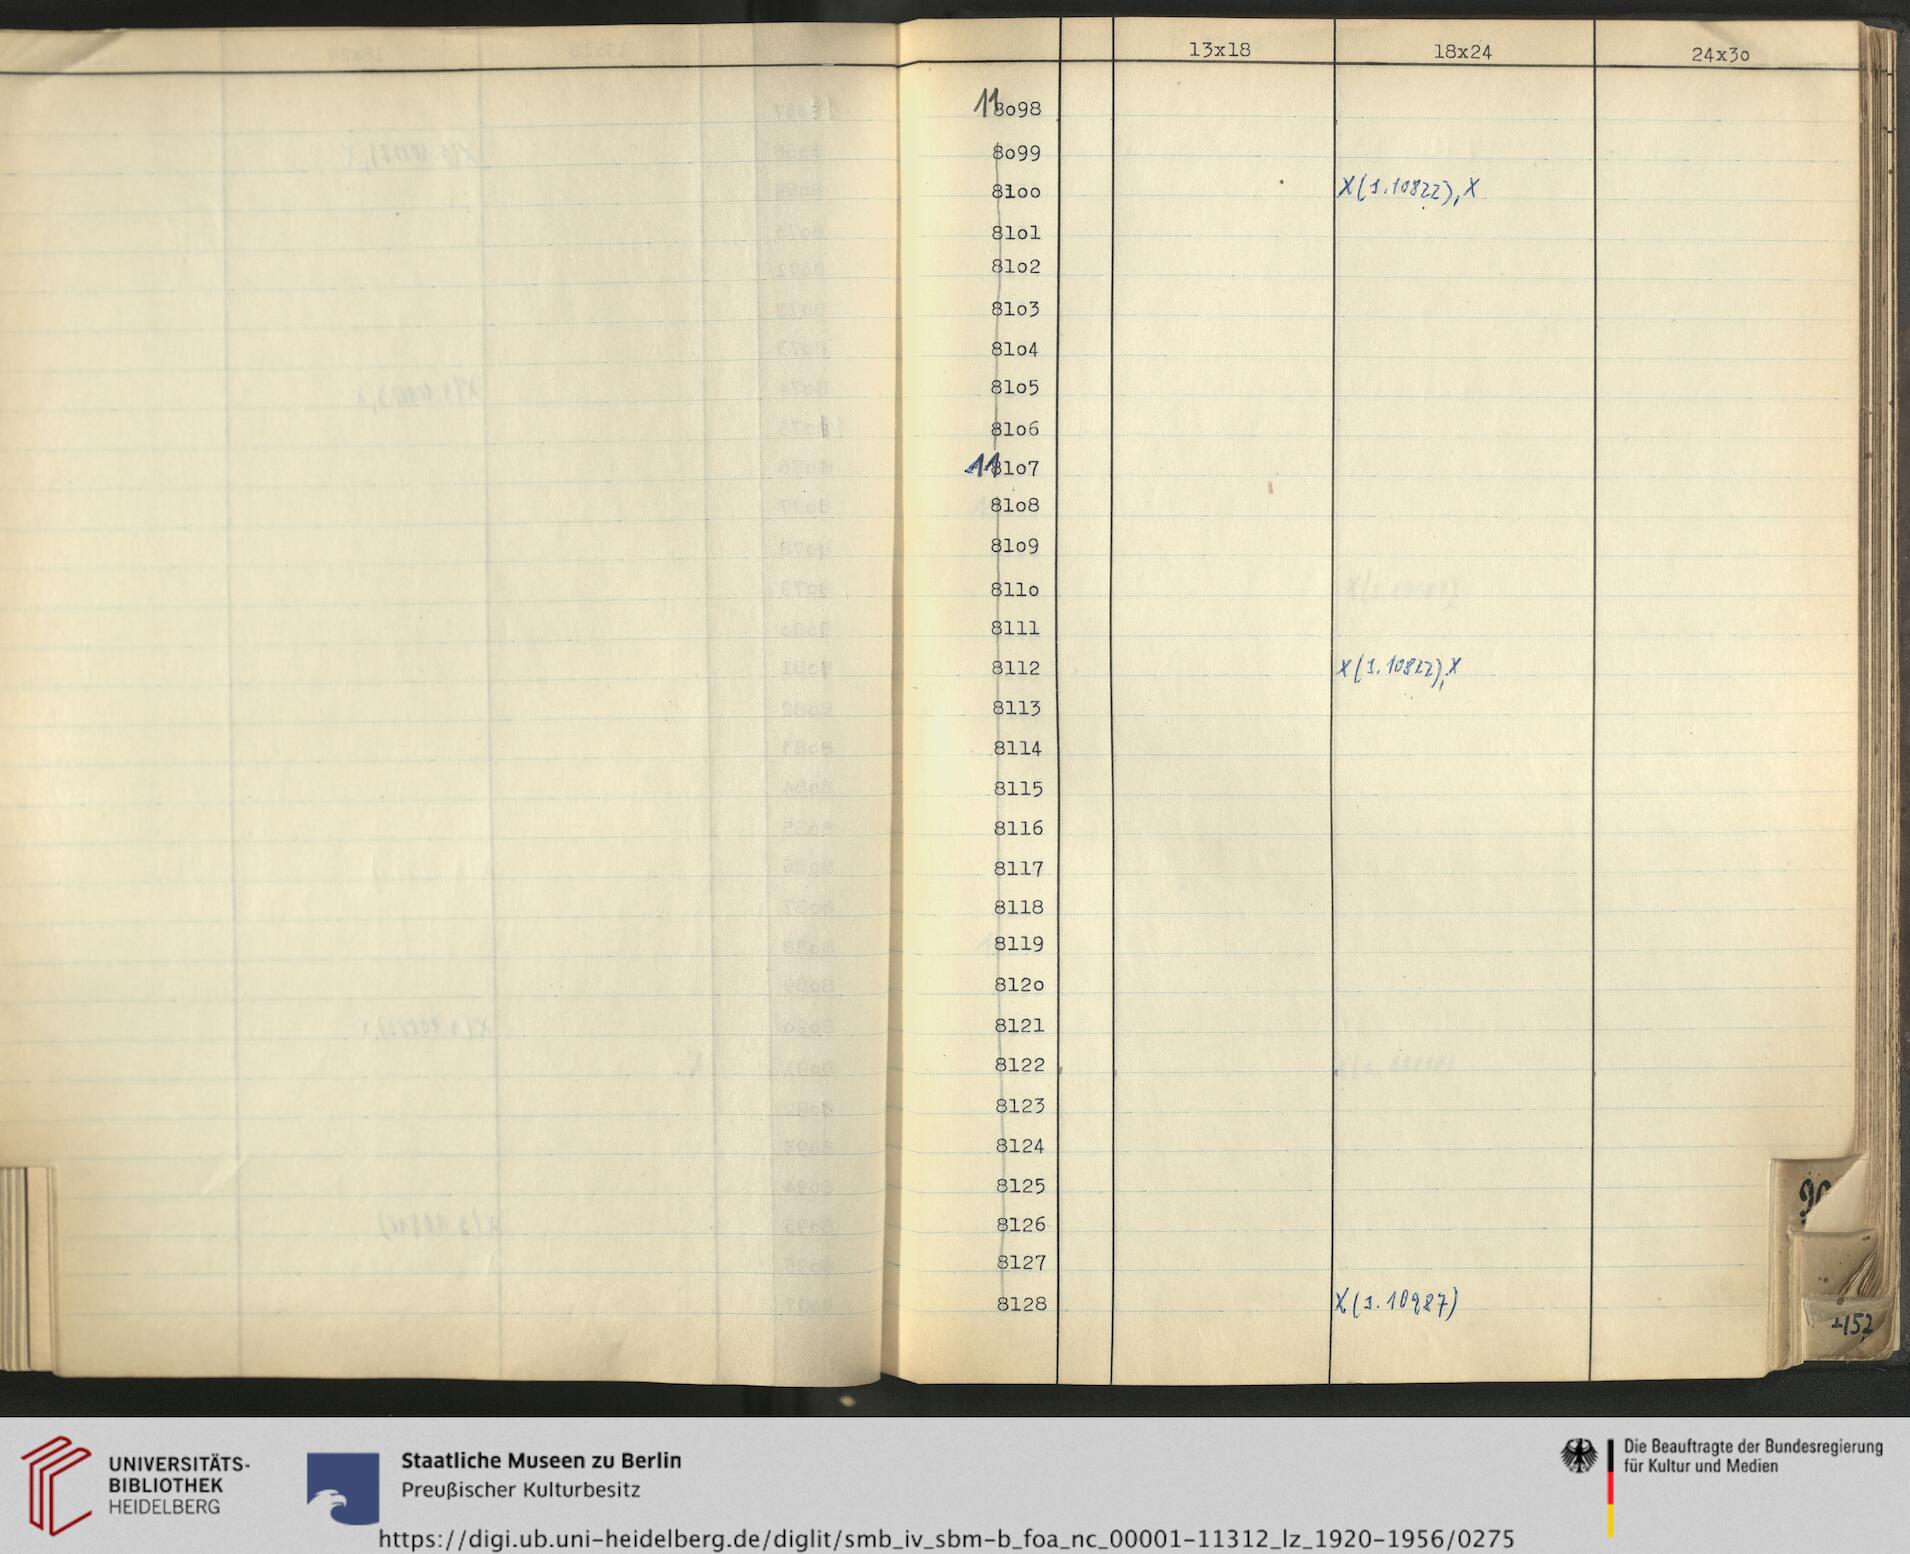 13x18 18x24 24x3o
11 8o98
8o99
81oo X(s.10822), X
81o1
81o2
81o3
81o4
81o5
81o6
11 81o7
81o8
81o9
811o
8111
8112 X(s.10822), X
8113
8114
8115
8116
8117
8118
8119
812o
8121
8122
8123
8124
8125
8126
8127
8128 X(s.10987)
UNIVERSITÄTS-
BIBLIOTHEK
HEIDELBERG
Staatliche Museen zu Berlin
Preußischer Kulturbesitz
Die Beauftragte der Bundesregierung
für Kultur und Medien
https://digi.ub.uni-heidelberg.de/diglit/smb_iv_sbm-b_foa_nc_00001-11312_lz_1920-1956/0275